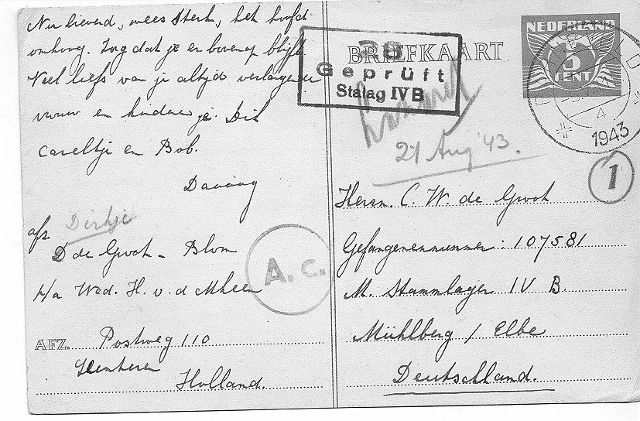 Nu lieverd, wees sterk, het hoofd
omhoog. Zorg dat je er bovenop blijft
Veel liefs van je altijd verlangende
vrouw en kindertje. Dik
Careltje en Bob.
Daaag
Dirkje
afz
D de Groot - Blom
p/a Wed. H. v. d. Mheen
AFZ. Postweg 110
Lunteren
Holland.
A.C.
BRIEFKAART
38
Geprüft
Stalag IVB
NEDERLAND
5
CENT
4
1943
21 Aug '43.
1
Herrn. C. W. de Groot
Gefangenennummer: 107581
M. Stammlager IV B.
Mühlberg / Elbe
Deutschland.